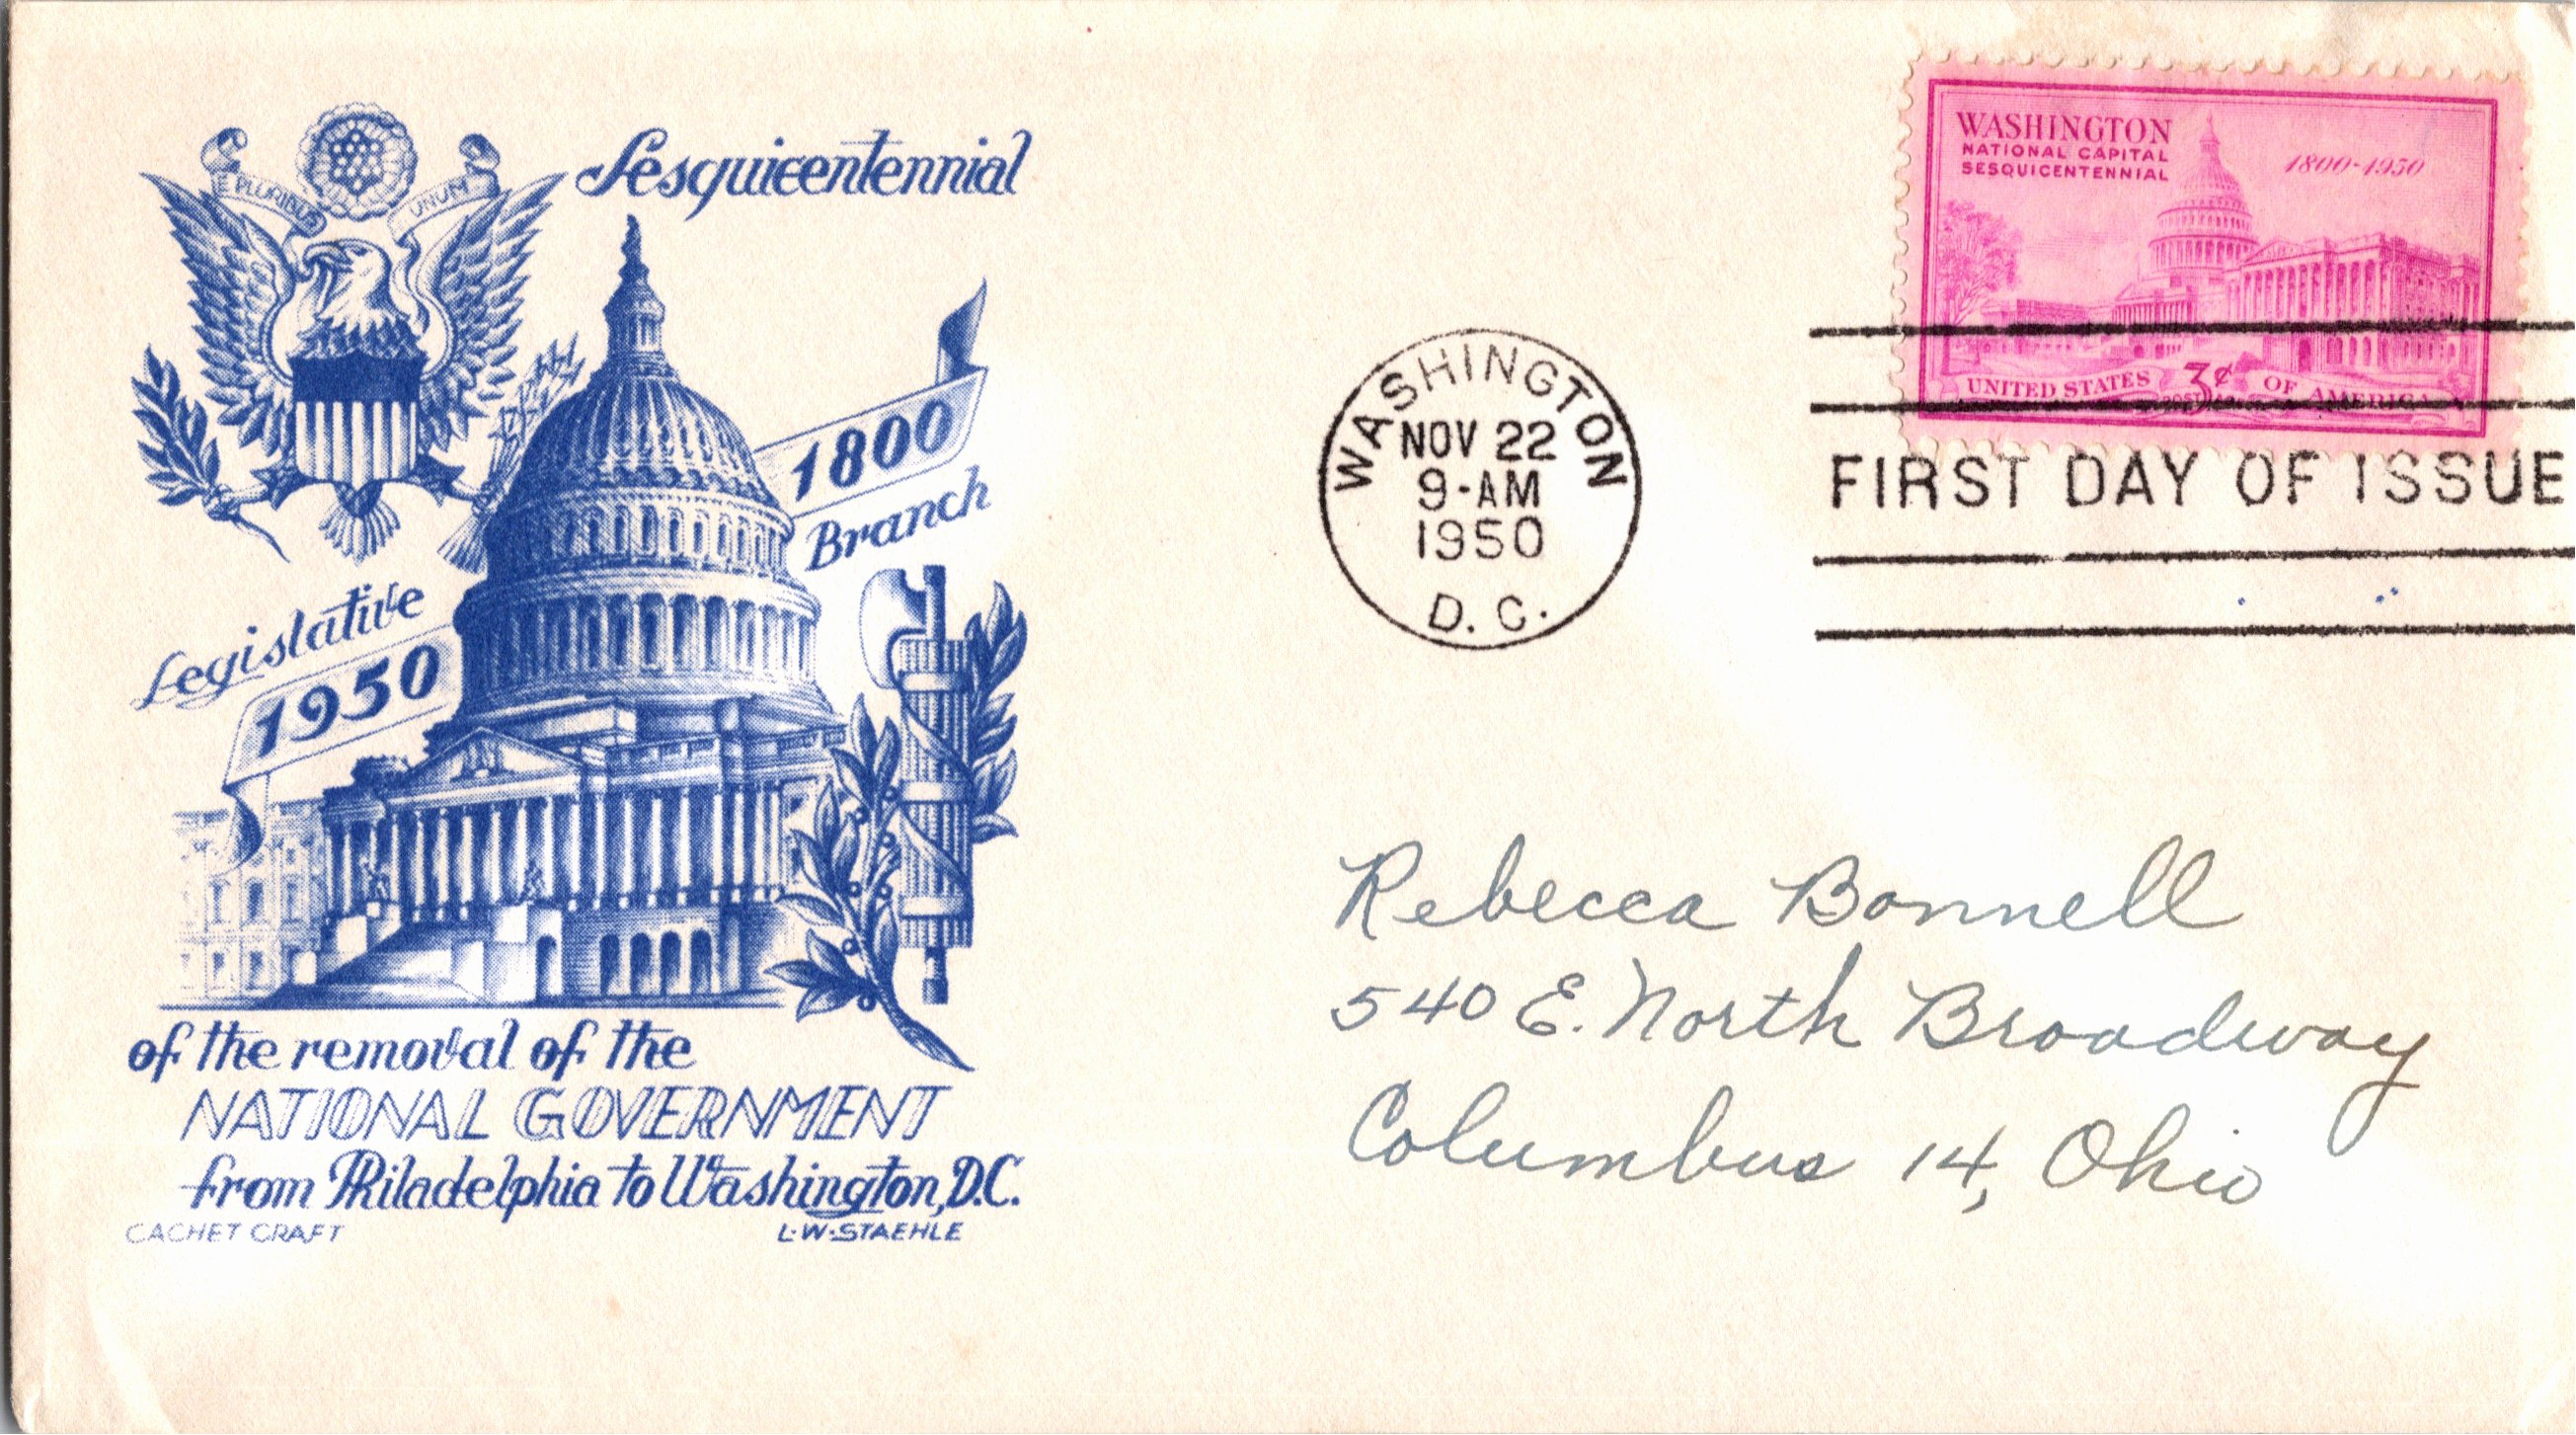 E PLURIBUS UNUM
Sesquicentennial
1800
Branch
Legislative
1950
of the removal of the
NATIONAL GOVERNMENT
from Philadelphia to Washington, D.C.
CACHET CRAFT
L·W·STAEHLE
WASHINGTON
NOV 22
9-AM
1950
D. C.
WASHINGTON
NATIONAL CAPITAL
SESQUICENTENNIAL
1800-1950
UNITED STATES 3¢ OF AMERICA
FIRST DAY OF ISSUE
Rebecca Bonnell
540 E. North Broadway
Columbus 14, Ohio